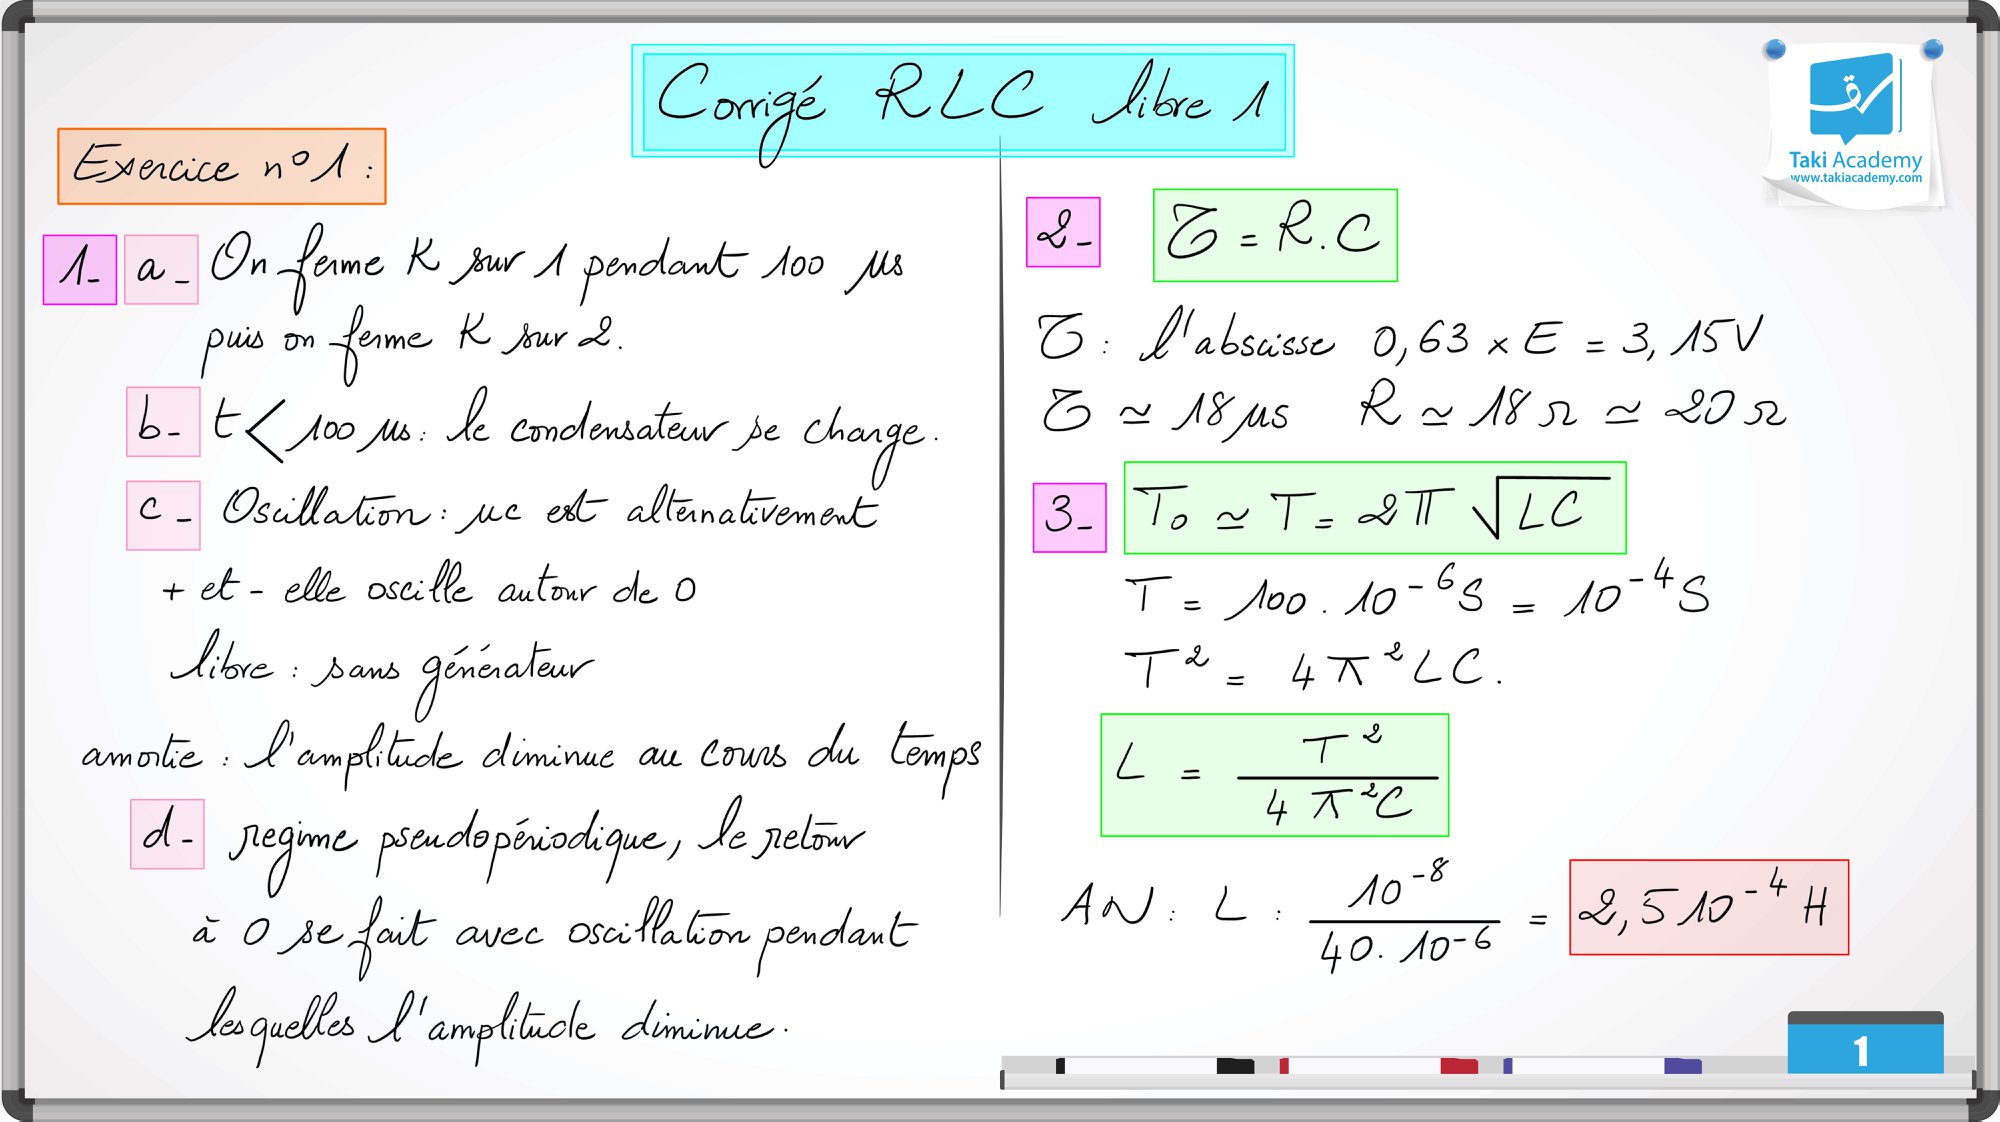 Corrigé RLC libre 1
Taki Academy
www.takiacademy.com
Exercice n°1 :
1- a- On ferme K sur 1 pendant 100 µs
puis on ferme K sur 2.
b- t < 100 µs : le condensateur se charge.
c- Oscillation : uc est alternativement
+ et - elle oscille autour de 0
libre : sans générateur
amortie : l'amplitude diminue au cours du temps
d- regime pseudopériodique, le retour
à 0 se fait avec oscillation pendant
lesquelles l'amplitude diminue.
2- τ = R.C
τ : l'abscisse 0,63 × E = 3,15V
τ ≃ 18µs R ≃ 18Ω ≃ 20Ω
3- T₀ ≃ T = 2π √LC
T = 100. 10⁻⁶S = 10⁻⁴S
T² = 4π²LC.
L = T² / 4π²C
AN : L : 10⁻⁸ / 40. 10⁻⁶ = 2,5 10⁻⁴ H
1